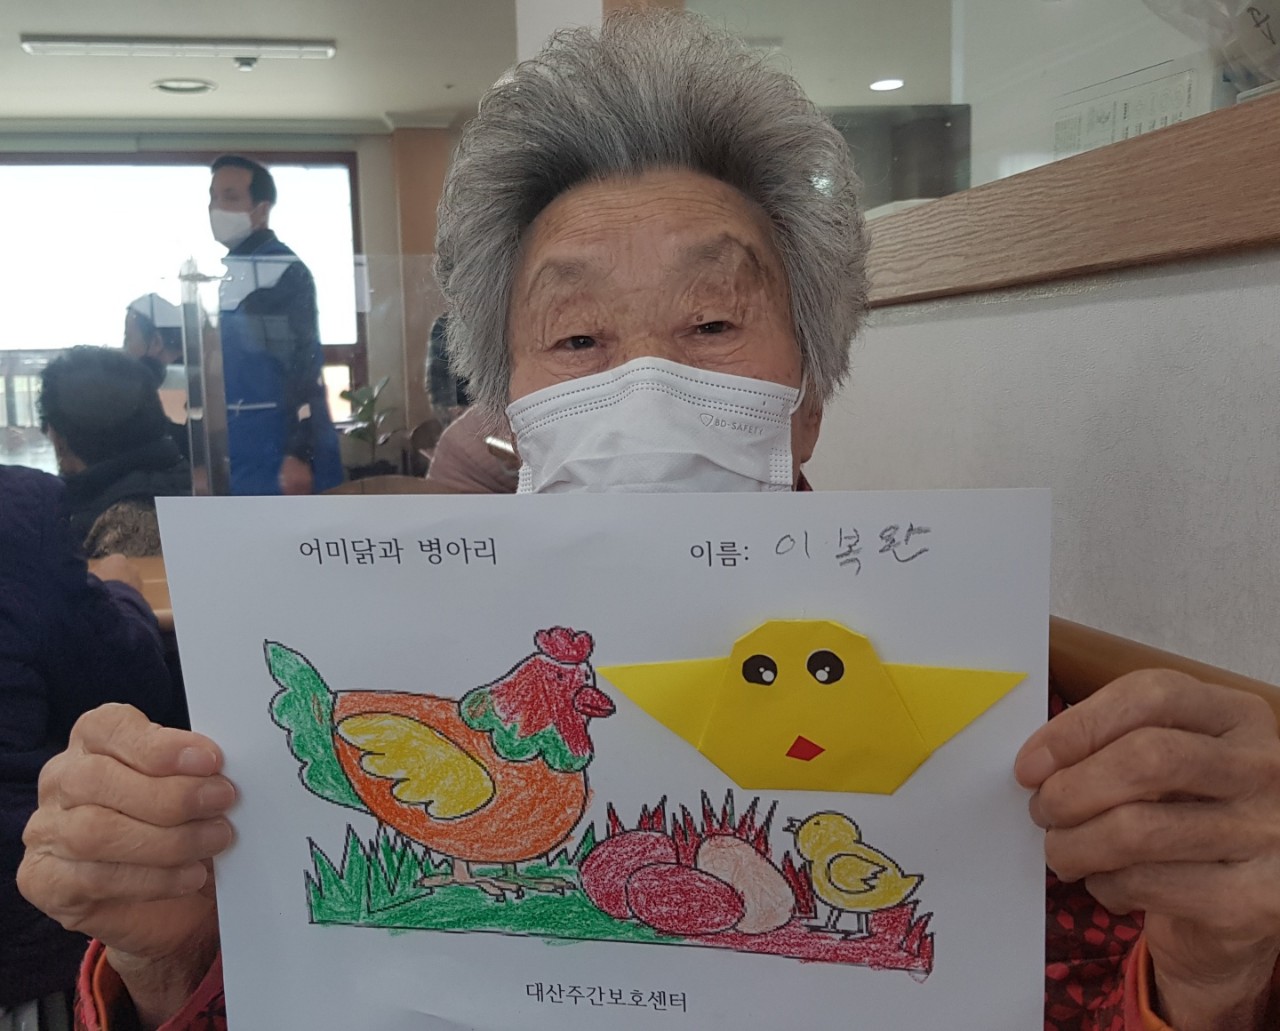 어미닭과 병아리
이름: 이복완
대산주간보호센터
BD-SAFETY